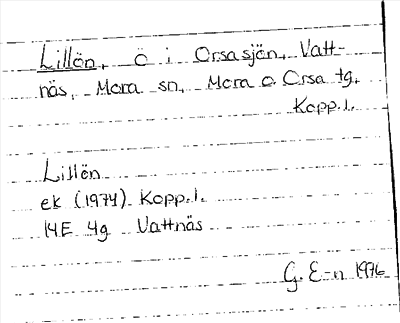 Lillön, ö i Orsasjön, Vatt-
näs, Mora sn, Mora o. Orsa tg,
Kopp.l.
Lillön
ek (1974) Kopp.l.
14E 4g Vattnäs
G. E-n 1976